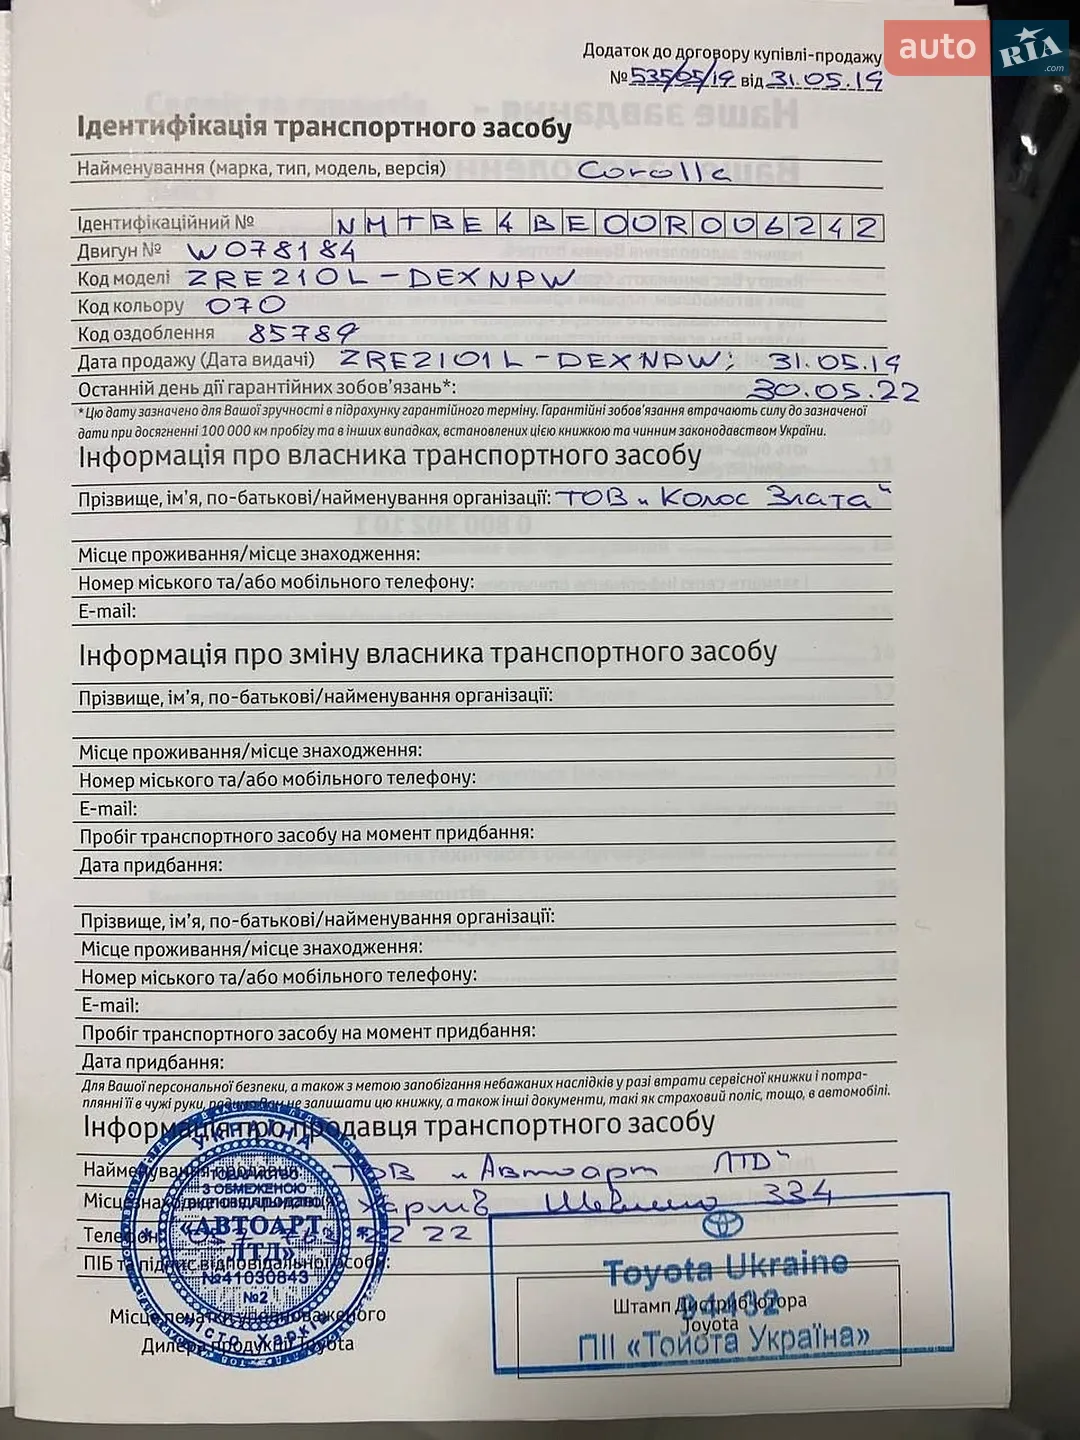 auto RIA .com
Додаток до договору купівлі-продажу
№ 535/05/19 від 31.05.19
Ідентифікація транспортного засобу
Найменування (марка, тип, модель, версія) Corolla
Ідентифікаційний № NMTBE4BE00R006242
Двигун № W078184
Код моделі ZRE210L-DEXNPW
Код кольору 070
Код оздоблення 85789
Дата продажу (Дата видачі) ZRE2101L-DEXNPW; 31.05.19
Останній день дії гарантійних зобов'язань*: 30.05.22
*Цю дату зазначено для Вашої зручності в підрахунку гарантійного терміну. Гарантійні зобов'язання втрачають силу до зазначеної
дати при досягненні 100 000 км пробігу та в інших випадках, встановлених цією книжкою та чинним законодавством України.
Інформація про власника транспортного засобу
Прізвище, ім'я, по-батькові/найменування організації: ТОВ "Колос Злата"
Місце проживання/місце знаходження:
Номер міського та/або мобільного телефону:
E-mail:
Інформація про зміну власника транспортного засобу
Прізвище, ім'я, по-батькові/найменування організації:
Місце проживання/місце знаходження:
Номер міського та/або мобільного телефону:
E-mail:
Пробіг транспортного засобу на момент придбання:
Дата придбання:
Прізвище, ім'я, по-батькові/найменування організації:
Місце проживання/місце знаходження:
Номер міського та/або мобільного телефону:
E-mail:
Пробіг транспортного засобу на момент придбання:
Дата придбання:
Для Вашої персональної безпеки, а також з метою запобігання небажаних наслідків у разі втрати сервісної книжки і потра-
плянні її в чужі руки, радимо Вам не залишати цю книжку, а також інші документи, такі як страховий поліс, тощо, в автомобілі.
Інформація про продавця транспортного засобу
Найменування продавця: ТОВ "Автоарт ЛТД"
Місце знаходження: Харків 334
Телефон: 22 22
ПІБ та підпис відповідальної особи:
УКРАЇНА
ТОВАРИСТВО
З ОБМЕЖЕНОЮ
ВІДПОВІДАЛЬНІСТЮ
«АВТОАРТ
ЛТД»
№41030843
№2
місто Харків
Місце печатки уповноваженого
Дилера продукції Toyota
Toyota Ukraine
04432
ПІІ «Тойота Україна»
Штамп Дистриб'ютора
Toyota